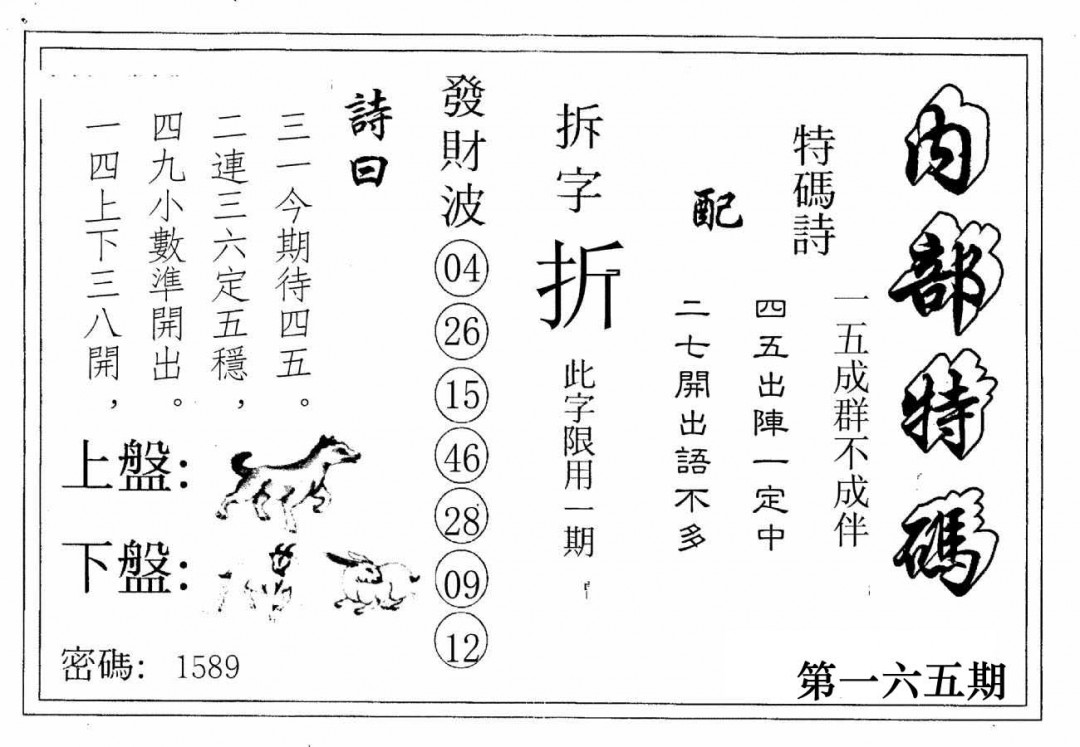 內部特碼
第一六五期
特碼詩
一五成群不成伴
配
四五出陣一定中
二七開出語不多
拆字
折
此字限用一期
發財波
04
26
15
46
28
09
12
詩曰
三一今期待四五。
二連三六定五穩，
四九小數準開出。
一四上下三八開，
上盤：
下盤：
密碼： 1589